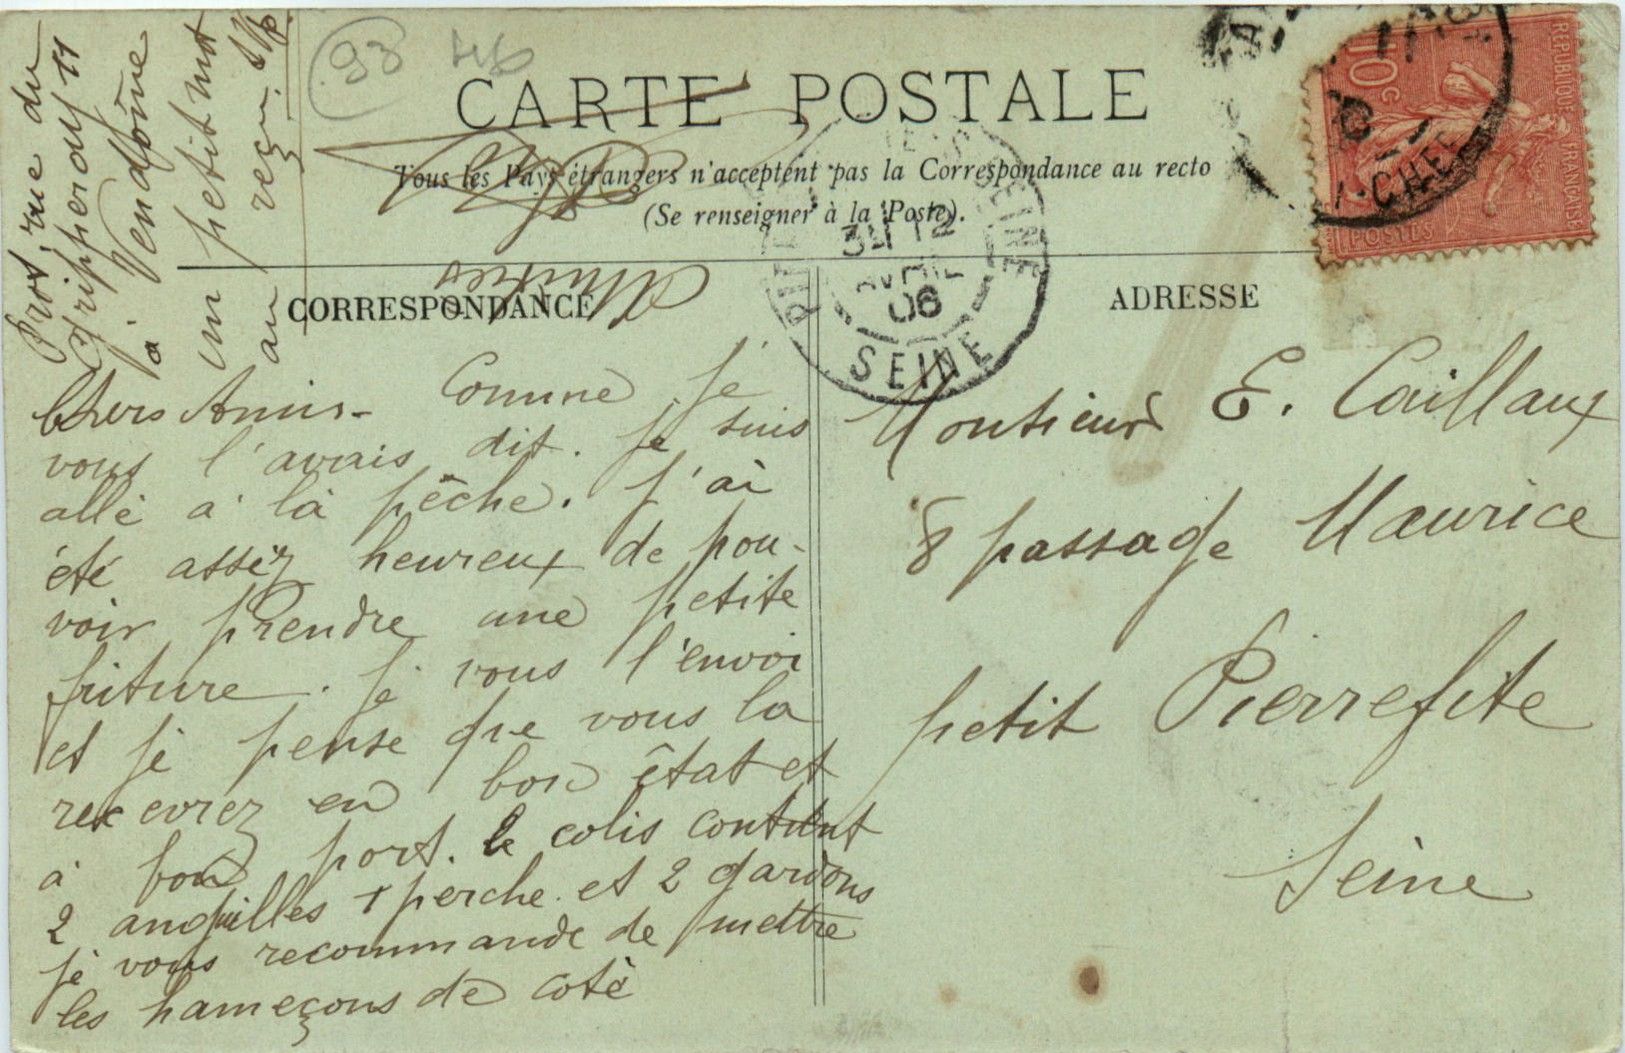 93
CARTE POSTALE
Tous les Pays étrangers n'acceptent pas la Correspondance au recto
(Se renseigner à la Poste).
CORRESPONDANCE
ADRESSE
Prot, rue du
Gripperay 11
à Vendôme
un petit mot
au reçu. SVP
Amitiés
Chers Amis - Comme je
vous l'avais dit. je suis
allé à la pêche. j'ai
été assez heureux de pou-
voir prendre une petite
friture. je vous l'envoi
et je pense que vous la
recevrez en bon état et
à bon port. le colis contient
2 anguilles 1 perche et 2 gardons
je vous recommande de mettre
les hameçons de coté
Monsieur E. Caillaux
8 passage Maurice
petit Pierrefite
Seine
12
AVRIL
06
SEINE
10c
REPUBLIQUE FRANÇAISE
POSTES